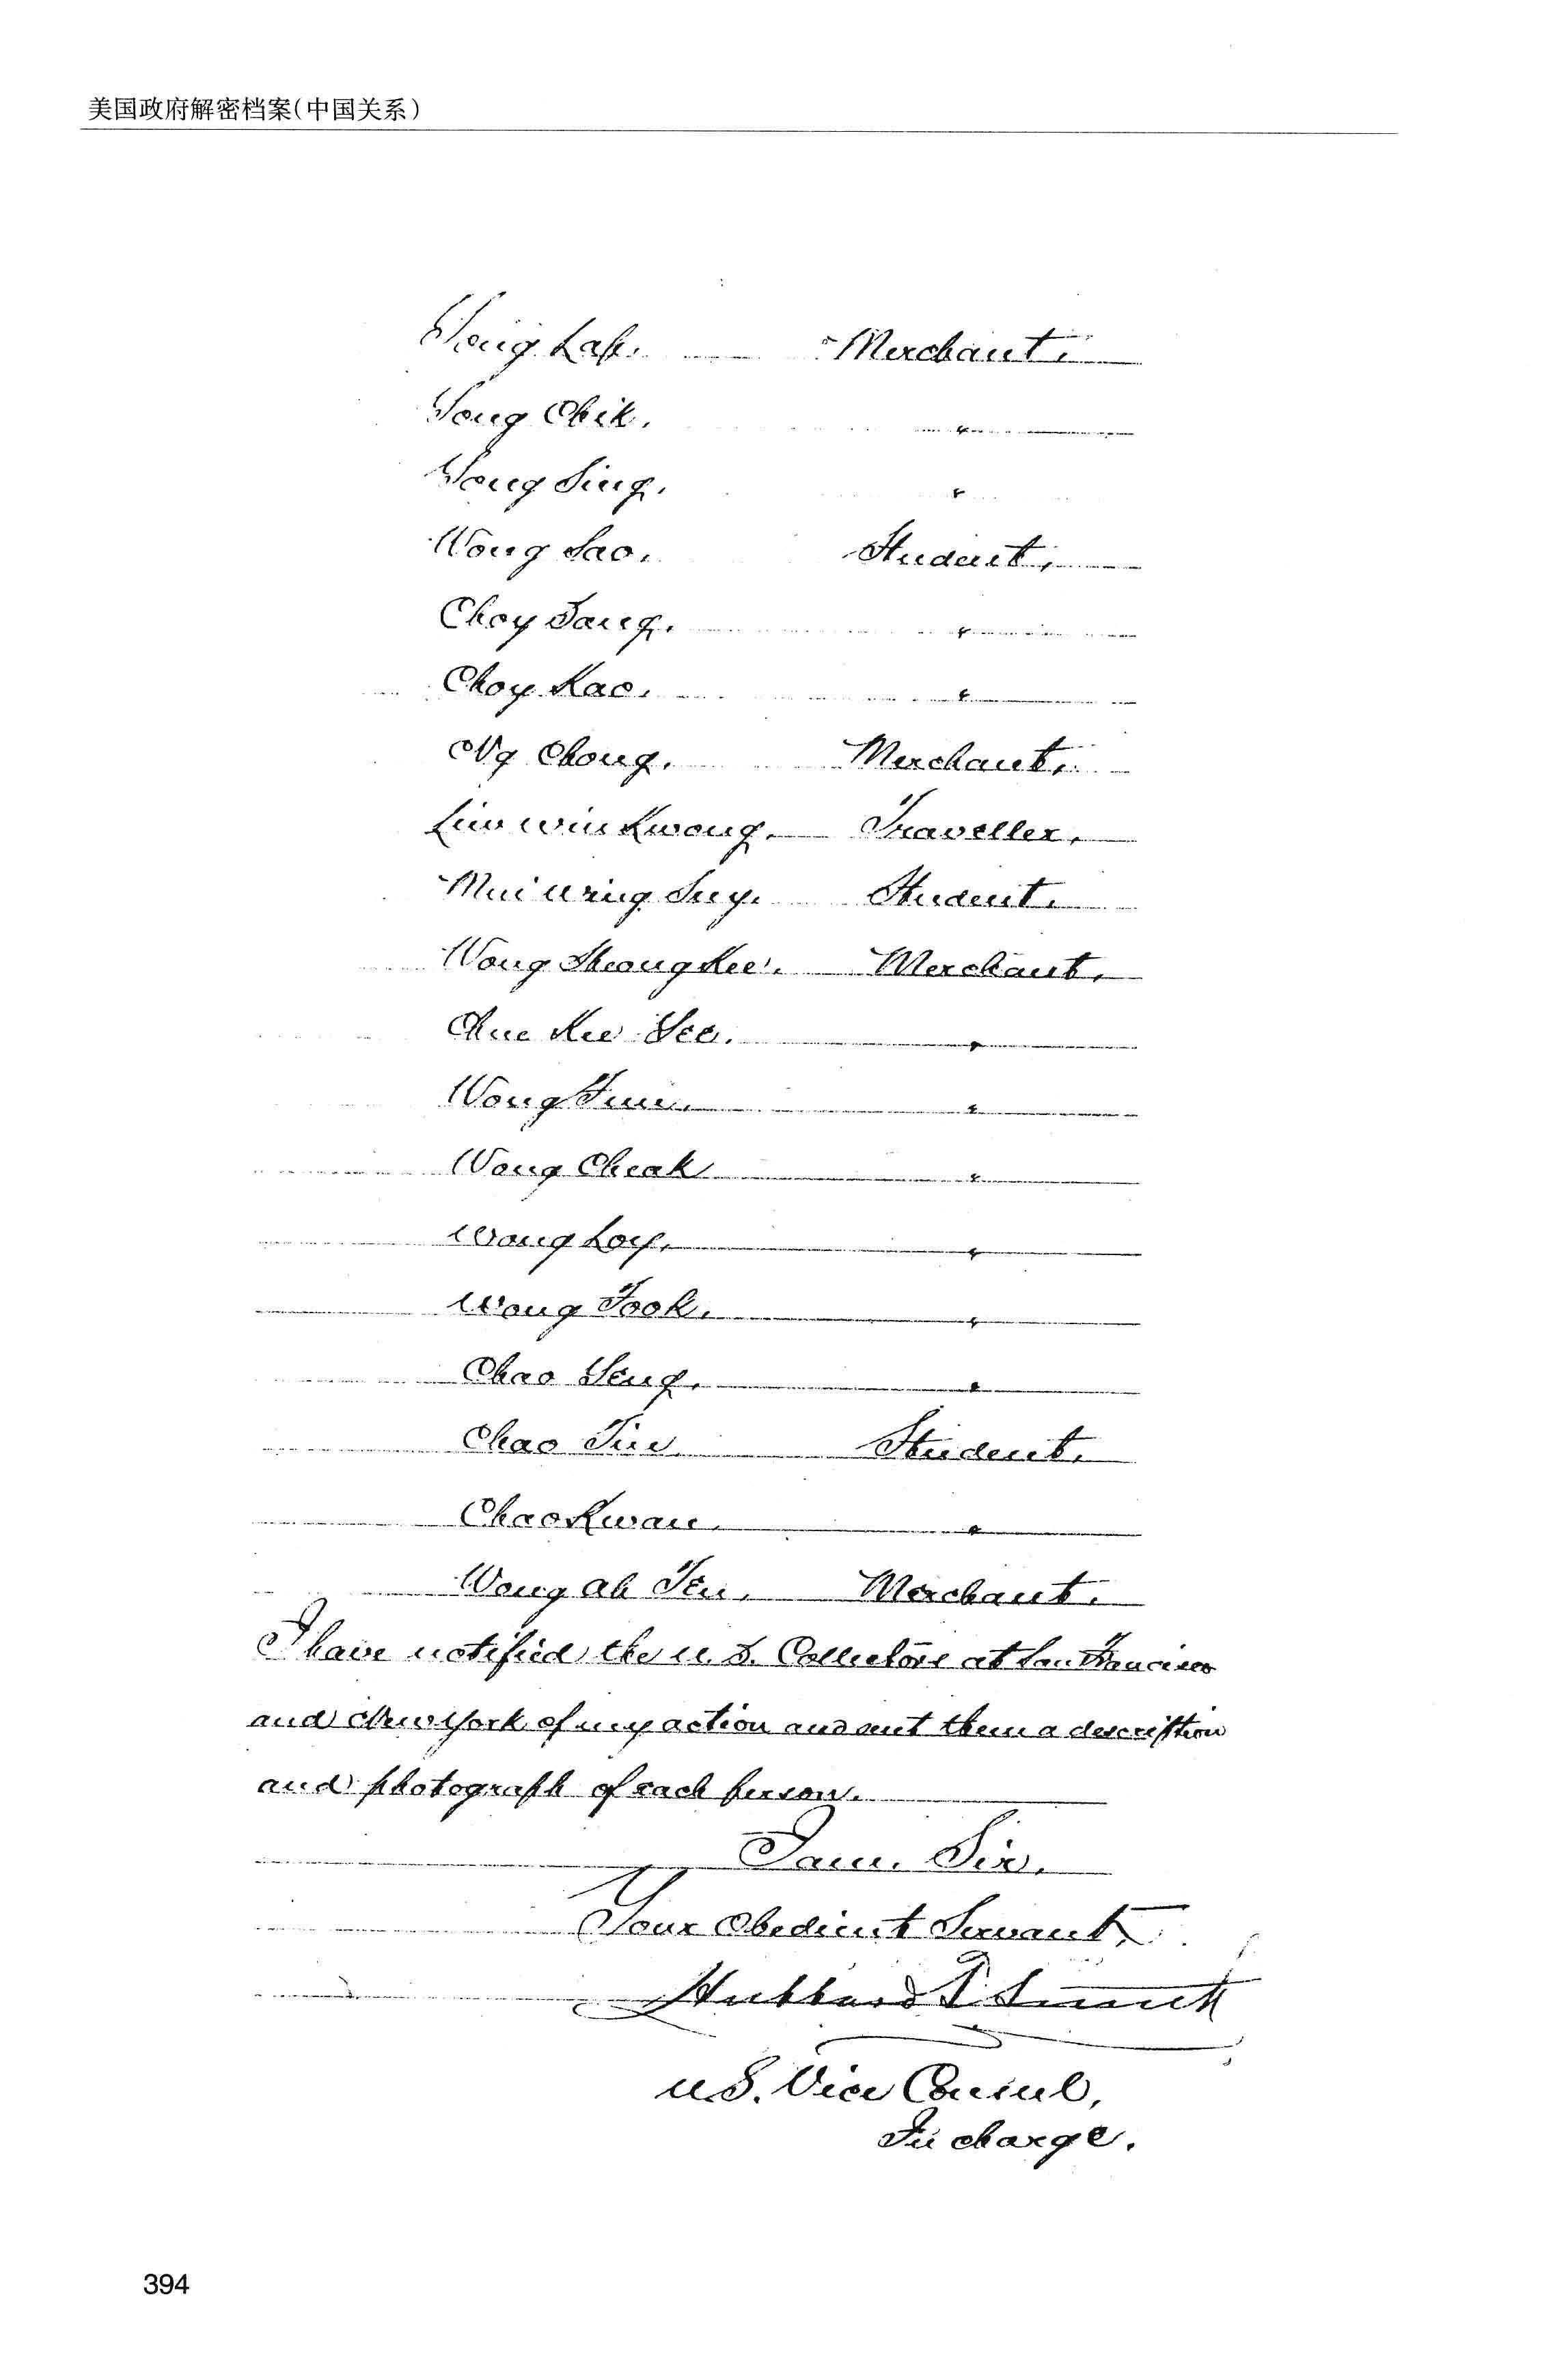 美国政府解密档案(中国关系)
Yong Lap. Merchant.
Yong Chik. "
Yong Sing. "
Wong Sao. Student.
Choy Sang. "
Choy Kao. "
Ng Chong. Merchant.
Win Kwong. Traveller.
Mui Wing Suy. Student.
Wong Sheong Kee. Merchant.
Chue Kee Yee. "
Wong "
Wong Cheak "
Wong Loy. "
Wong Fook. "
Chao Yeng. "
Chao Student.
Chao Kwan. "
Wong Ah Merchant.
I have notified the U.S. Collectors at San Francisco
and New York of my action and sent them a description
and photograph of each person.
I am. Sir.
Your Obedient Servant,
Hubbard T. Smith
U.S. Vice Consul,
In charge.
394